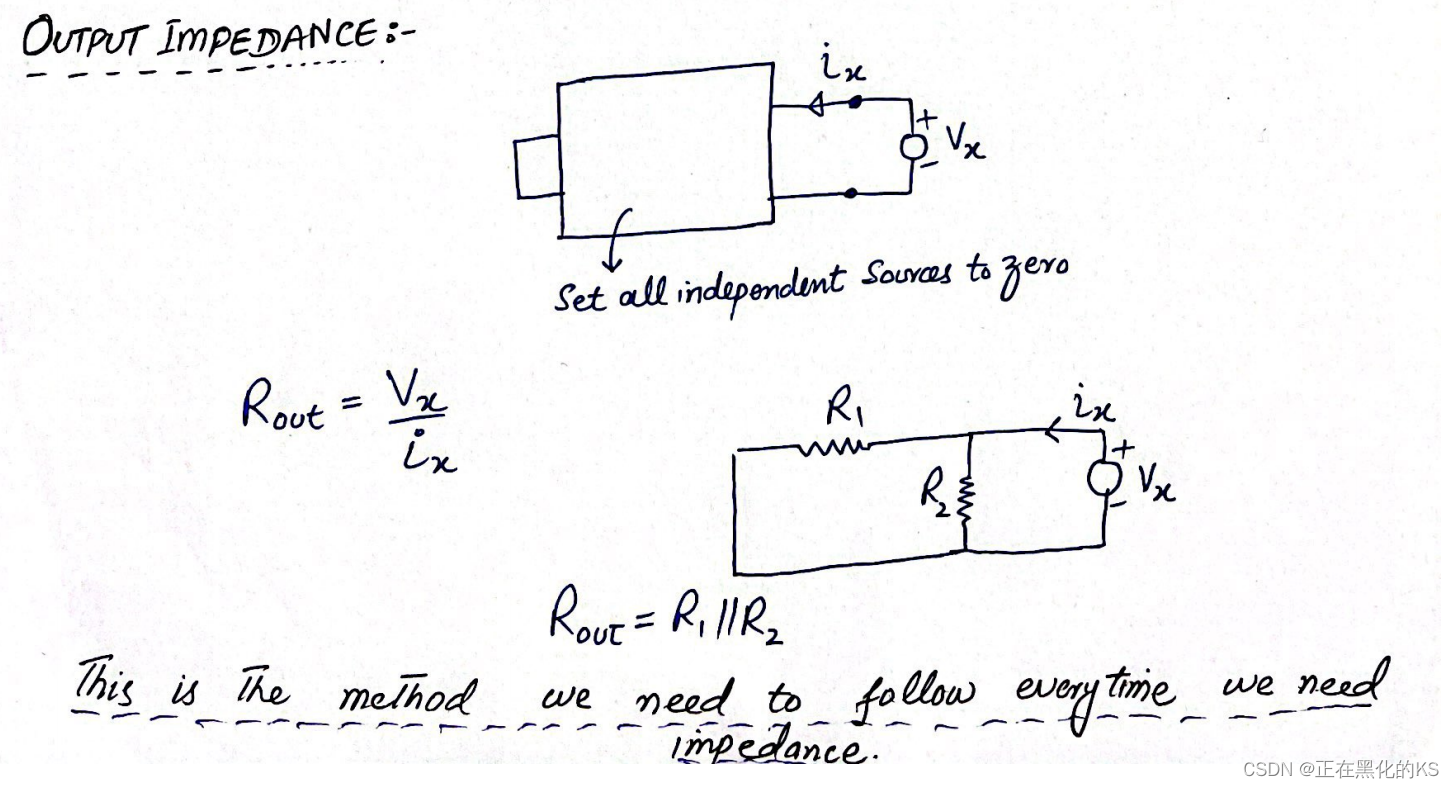 OUTPUT IMPEDANCE:-
ix
+
Vx
-
Set all independent Sources to zero
Rout = Vx / ix
R1
ix
+
R2
Vx
-
ROUT = R1 // R2
This is The meThod we need to follow every time we need
impedance.
CSDN @正在黑化的KS